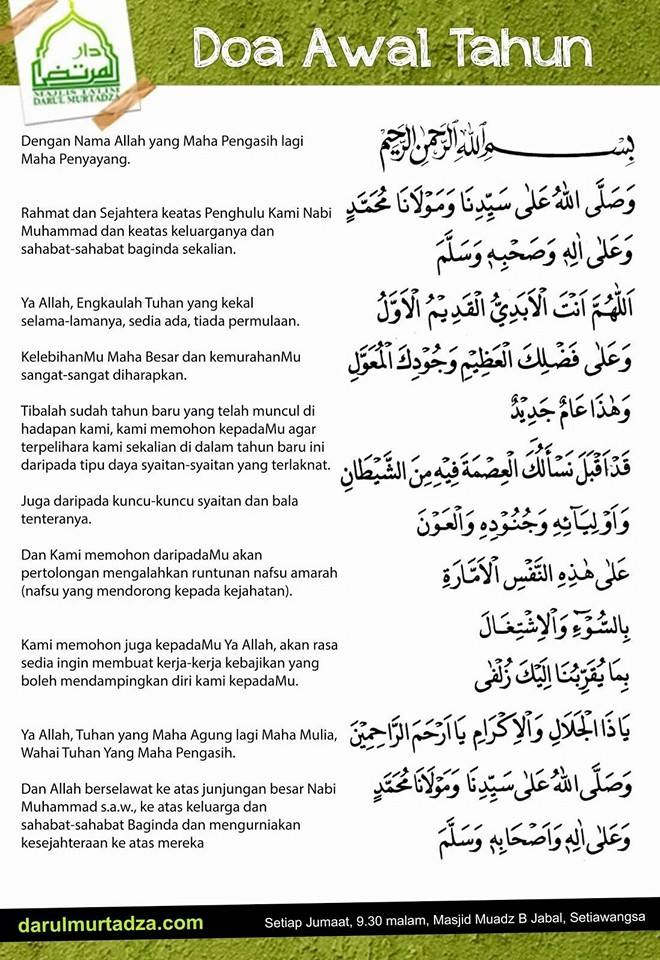 دار
المرتضى
MAJLIS TA'LIM
DARUL MURTADZA
Doa Awal Tahun
Dengan Nama Allah yang Maha Pengasih lagi
Maha Penyayang.
بِسْمِ اللهِ الرَّحْمٰنِ الرَّحِيْمِ
Rahmat dan Sejahtera keatas Penghulu Kami Nabi
Muhammad dan keatas keluarganya dan
sahabat-sahabat baginda sekalian.
وَصَلَّى اللهُ عَلٰى سَيِّدِنَا وَمَوْلَانَا مُحَمَّدٍ
وَعَلٰى اٰلِهٖ وَصَحْبِهٖ وَسَلَّمَ
Ya Allah, Engkaulah Tuhan yang kekal
selama-lamanya, sedia ada, tiada permulaan.
اَللّٰهُمَّ اَنْتَ الْاَبَدِيُّ الْقَدِيْمُ الْاَوَّلُ
KelebihanMu Maha Besar dan kemurahanMu
sangat-sangat diharapkan.
وَعَلٰى فَضْلِكَ الْعَظِيْمِ وَجُوْدِكَ الْمُعَوَّلِ
Tibalah sudah tahun baru yang telah muncul di
hadapan kami, kami memohon kepadaMu agar
terpelihara kami sekalian di dalam tahun baru ini
daripada tipu daya syaitan-syaitan yang terlaknat.
وَهٰذَا عَامٌ جَدِيْدٌ
قَدْ اَقْبَلَ نَسْأَلُكَ الْعِصْمَةَ فِيْهِ مِنَ الشَّيْطَانِ
Juga daripada kuncu-kuncu syaitan dan bala
tenteranya.
وَاَوْلِيَآئِهٖ وَجُنُوْدِهٖ وَالْعَوْنَ
Dan Kami memohon daripadaMu akan
pertolongan mengalahkan runtunan nafsu amarah
(nafsu yang mendorong kepada kejahatan).
عَلٰى هٰذِهِ النَّفْسِ الْاَمَّارَةِ
بِالسُّوْٓءِ وَالْاِشْتِغَالَ
Kami memohon juga kepadaMu Ya Allah, akan rasa
sedia ingin membuat kerja-kerja kebajikan yang
boleh mendampingkan diri kami kepadaMu.
بِمَا يُقَرِّبُنَا اِلَيْكَ زُلْفٰى
Ya Allah, Tuhan yang Maha Agung lagi Maha Mulia,
Wahai Tuhan Yang Maha Pengasih.
يَاذَا الْجَلَالِ وَالْاِكْرَامِ يَا اَرْحَمَ الرَّاحِمِيْنَ
Dan Allah berselawat ke atas junjungan besar Nabi
Muhammad s.a.w., ke atas keluarga dan
sahabat-sahabat Baginda dan mengurniakan
kesejahteraan ke atas mereka
وَصَلَّى اللهُ عَلٰى سَيِّدِنَا وَمَوْلَانَا مُحَمَّدٍ
وَعَلٰى اٰلِهٖ وَاَصْحَابِهٖ وَسَلَّمَ
darulmurtadza.com
Setiap Jumaat, 9.30 malam, Masjid Muadz B Jabal, Setiawangsa